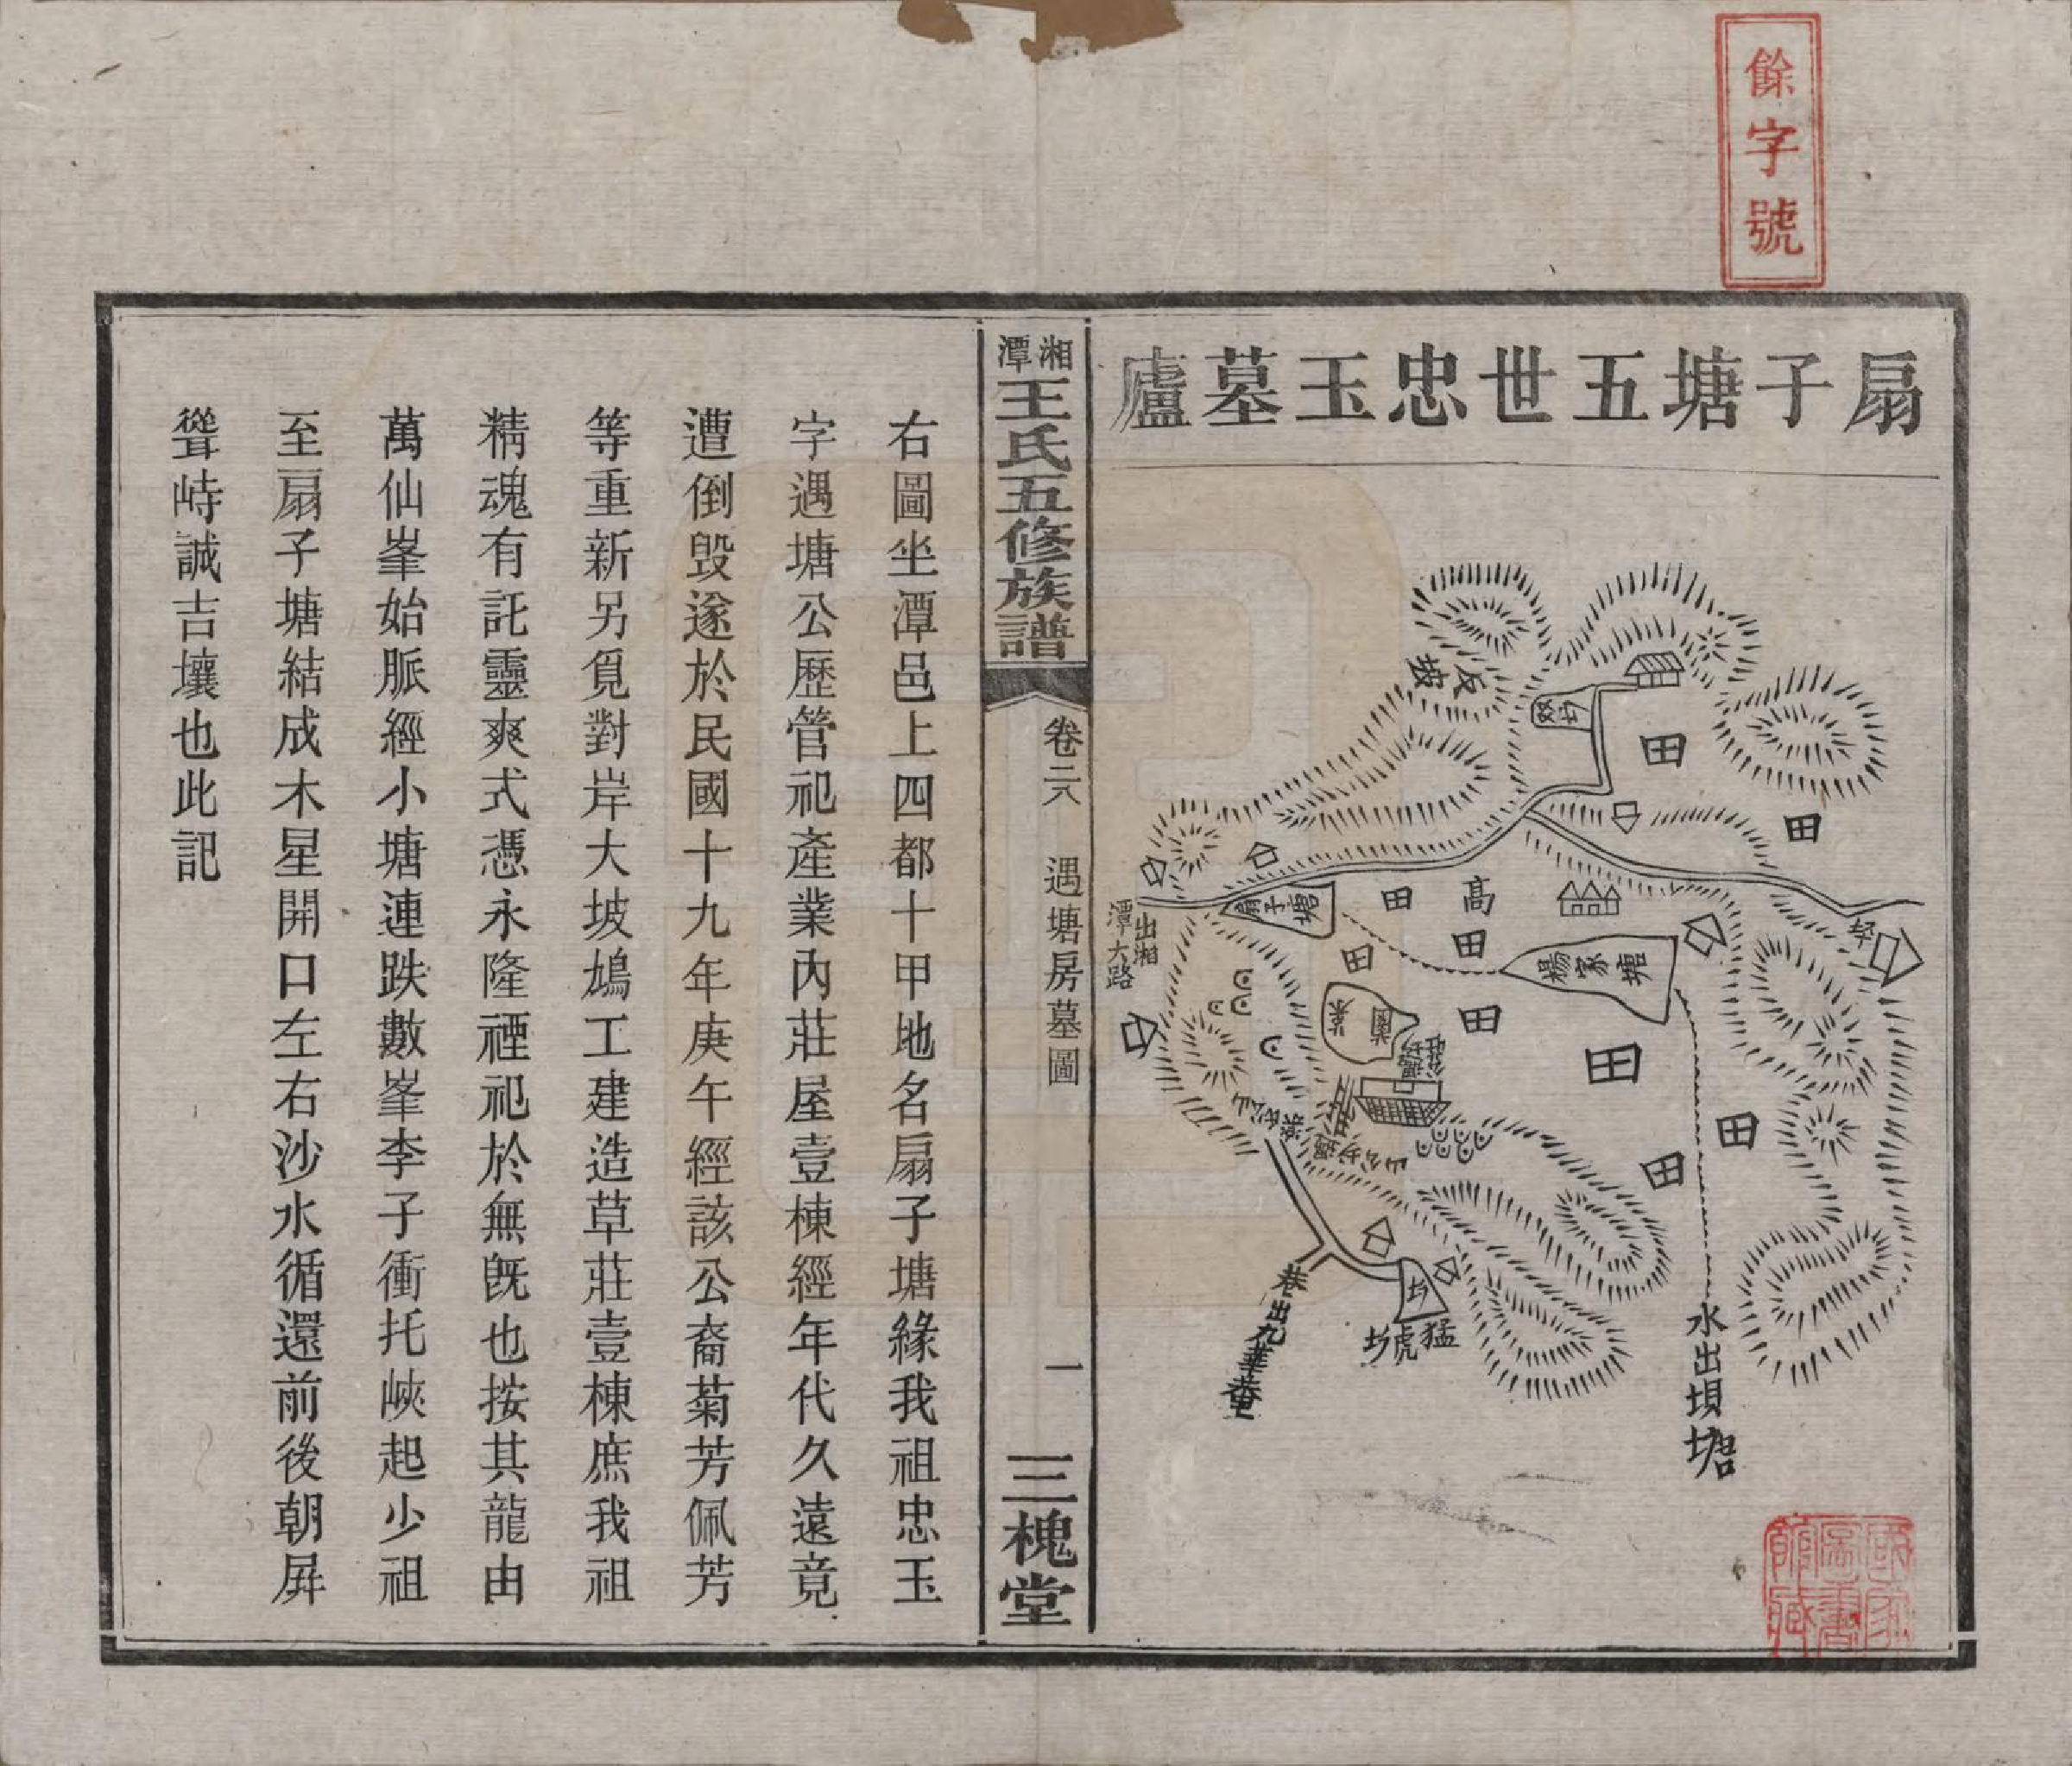 餘字號
扇子塘五世忠玉墓廬
反坡
田
田
高
田
田
田
田
田
田
田
扇子塘
楊家塘
出湘潭大路
菜園
猛虎圫
巷出九華菴
水出埧塘
湘潭王氏五修族譜
卷二八
遇塘房墓圖
一
三槐堂
右圖坐潭邑上四都十甲地名扇子塘緣我祖忠玉
字遇塘公歷管祀產業內莊屋壹棟經年代久遠竟
遭倒毀遂於民國十九年庚午經該公裔菊芳佩芳
等重新另覓對岸大坡鳩工建造草莊壹棟庶我祖
精魂有託靈爽式憑永隆禋祀於無旣也按其龍由
萬仙峯始脈經小塘連跌數峯李子衝托峽起少祖
至扇子塘結成木星開口左右沙水循還前後朝屏
聳峙誠吉壤也此記